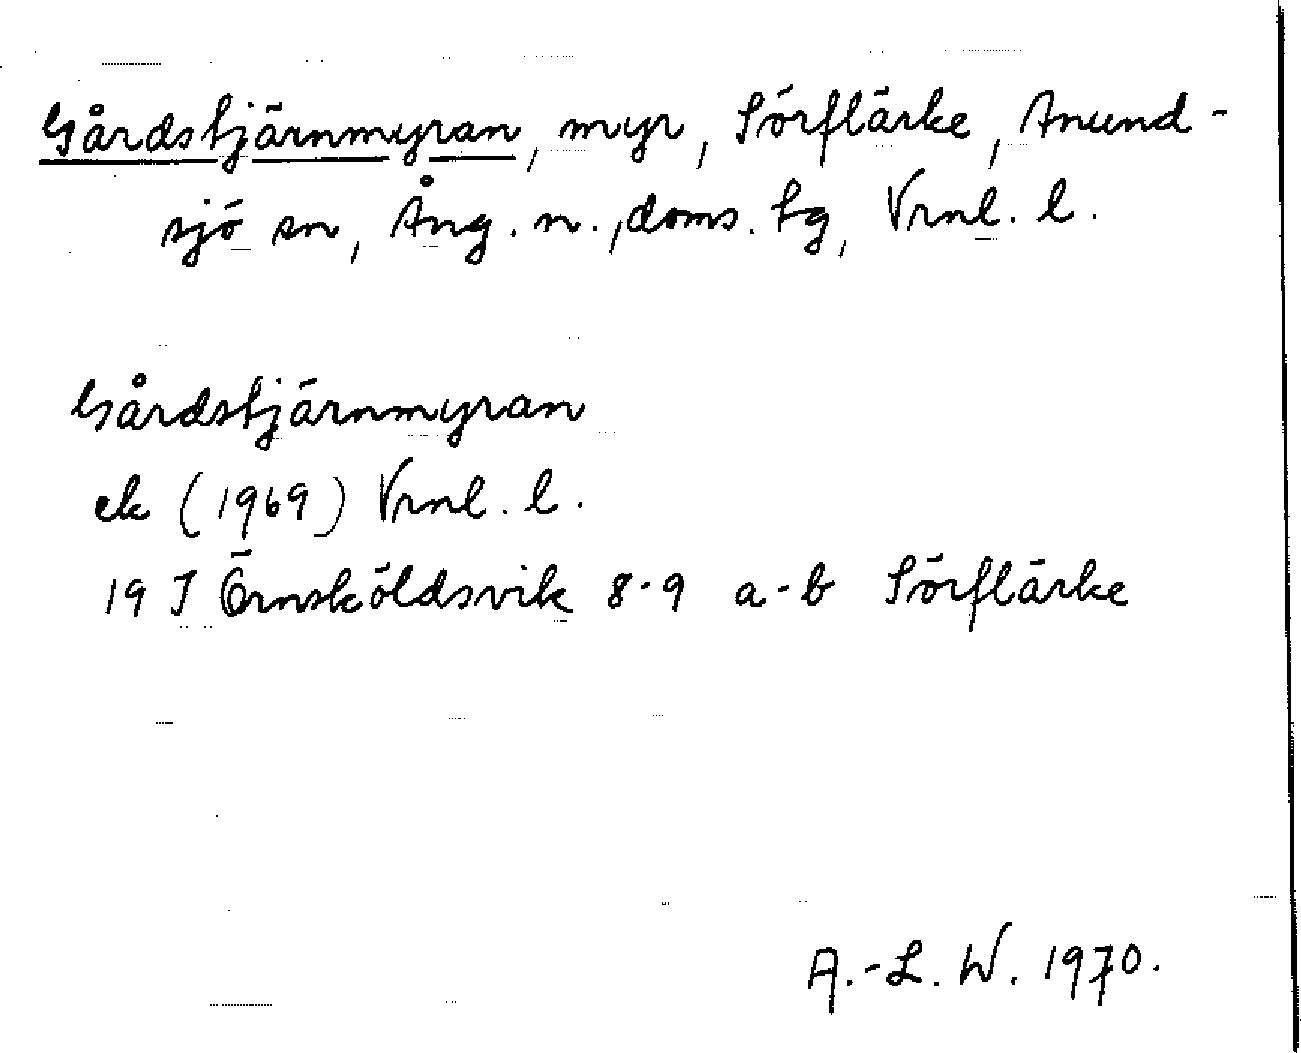 Gårdstjärnmyran, myr, Sörflärke, Anund-
sjö sn, Ång. n., doms. tg, Vrnl. l.
Gårdstjärnmyran
ek (1969) Vrnl. l.
19 I Örnsköldsvik 8-9 a-b Sörflärke
A.-L. W. 1970.